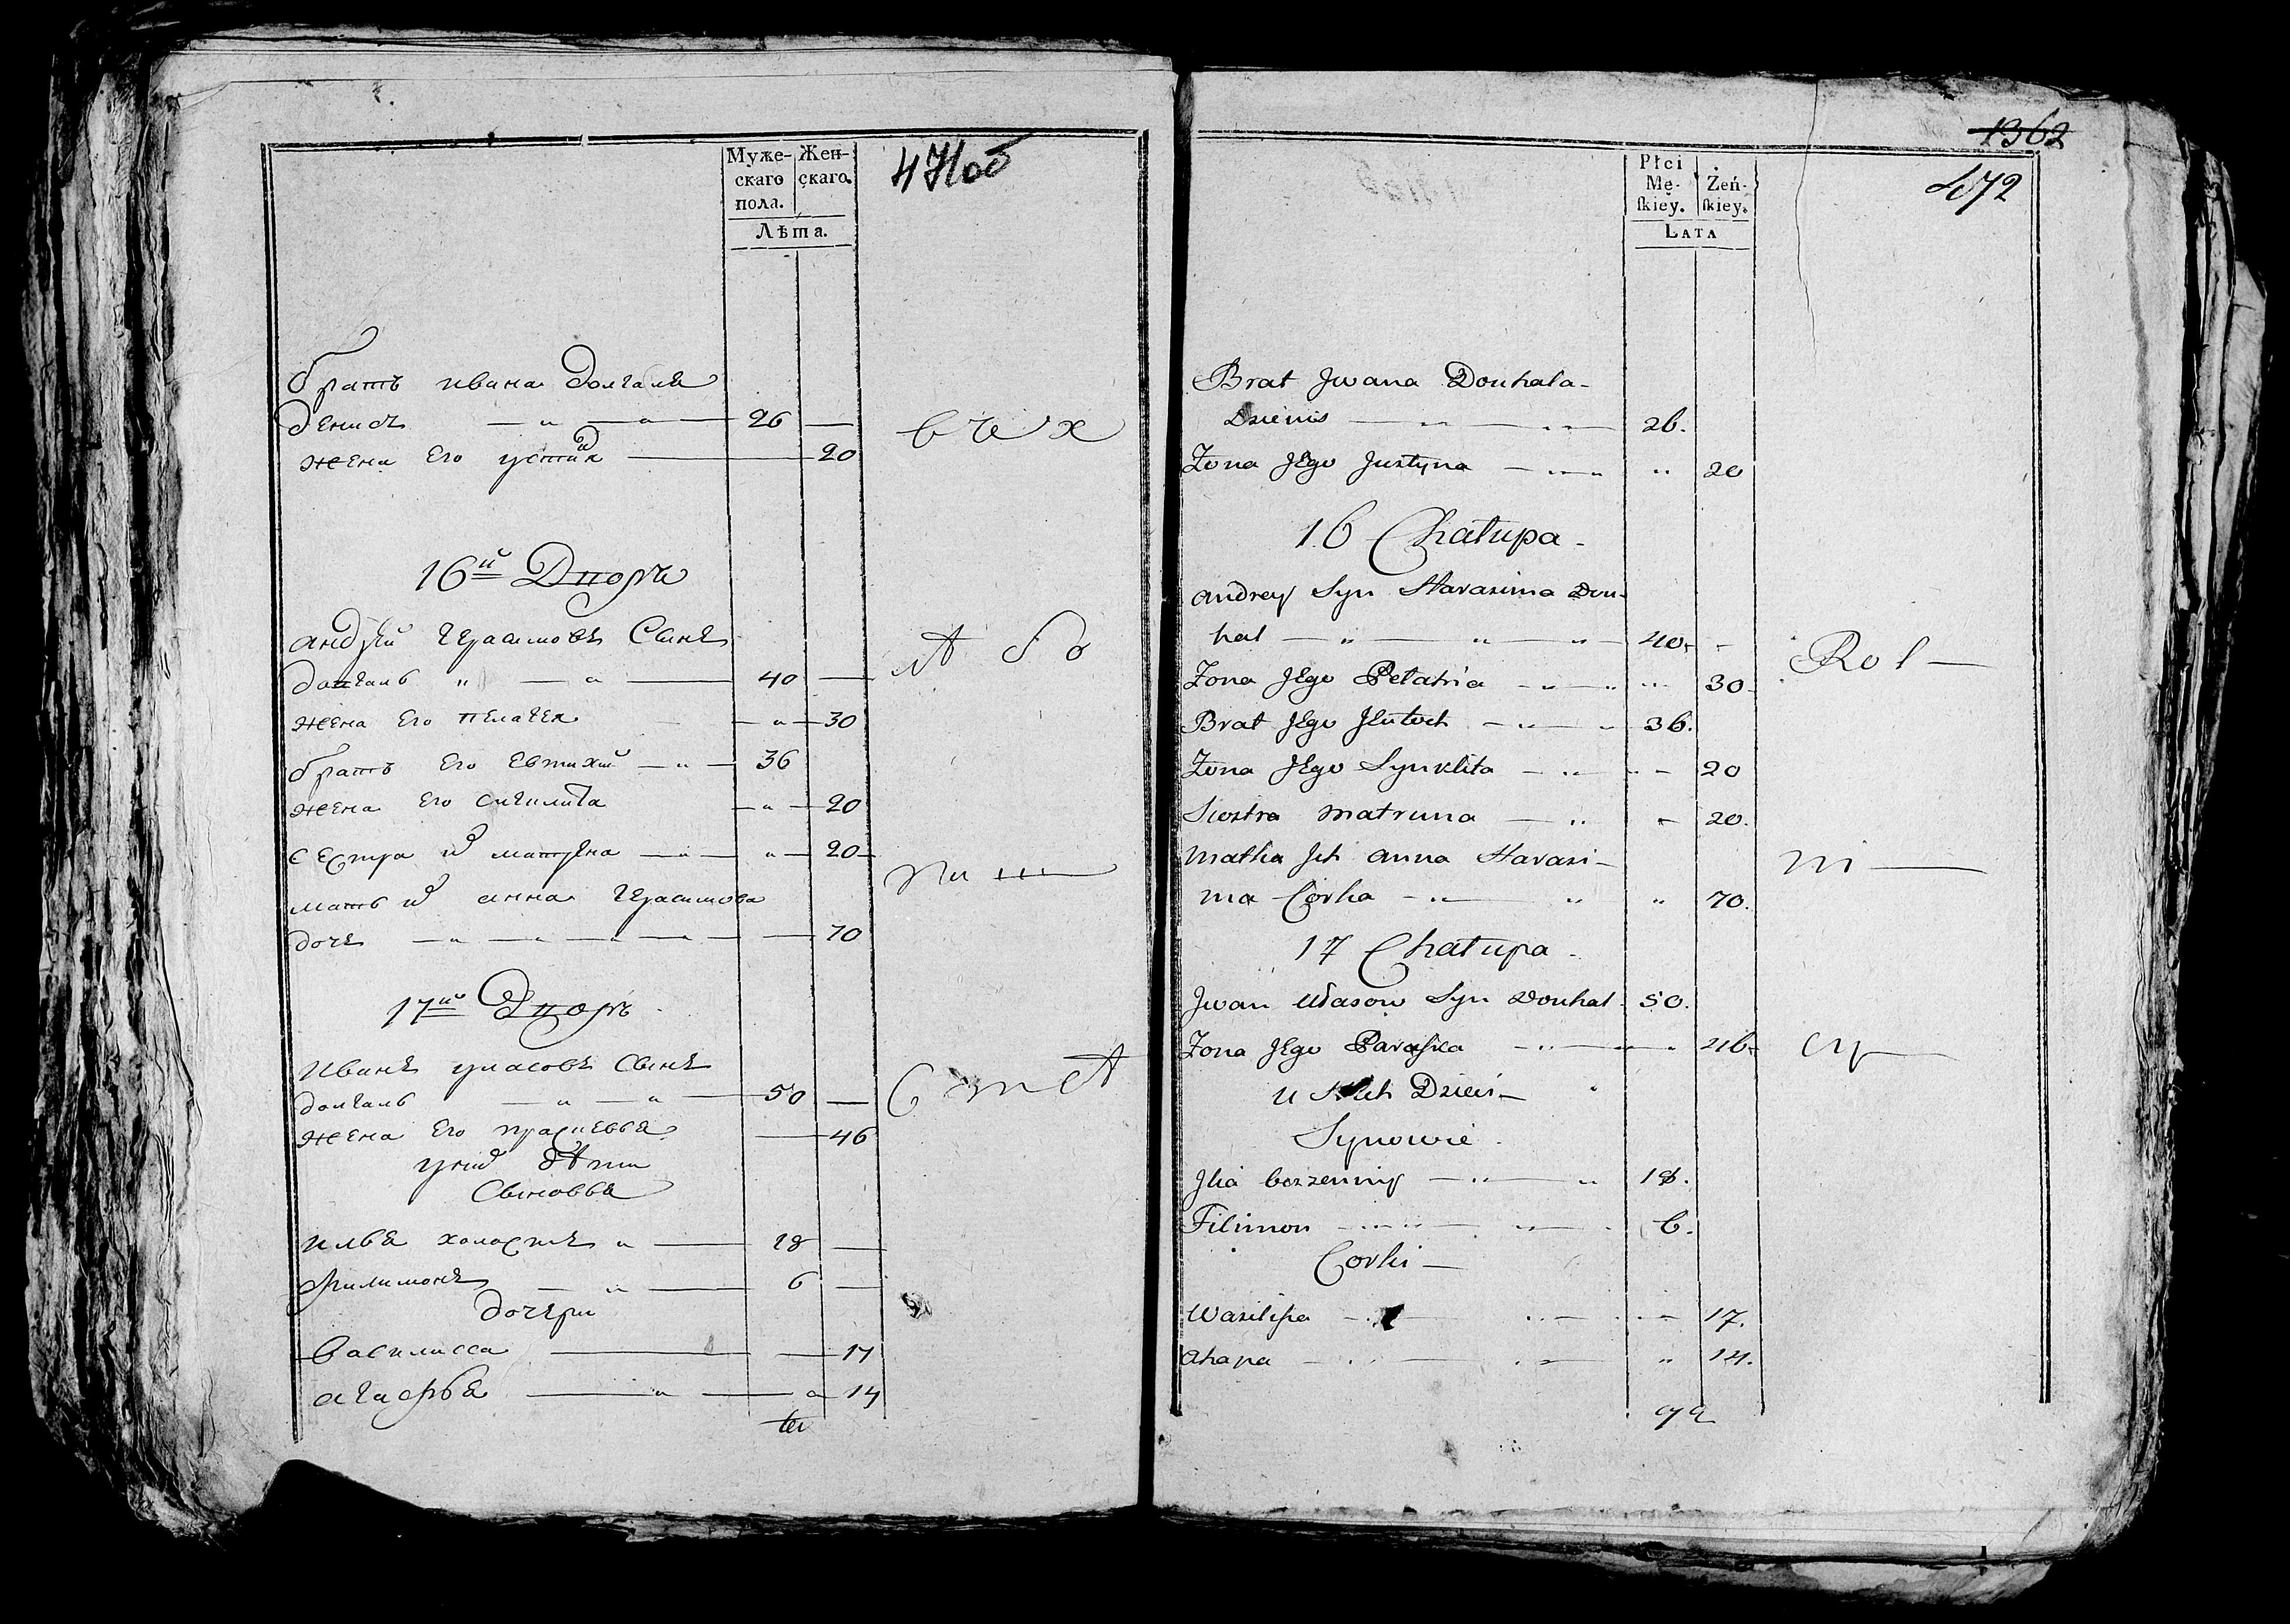 Муже-
скаго
пола.
Жен-
скаго.
Лѣта.
471об
братъ ивана долгаля
денисъ 26
жена его устиа 20
всѣх
16й Дворъ
андрей герасимовъ сынъ
долгаль 40
жена его пелагея 30
братъ его евтихий 36
жена его сигклита 20
сестра матрена 20
мать анна герасимова
дочь 70
17й Дворъ
иванъ уласовъ сынъ
долгаль 50
жена его прасцевья 46
у них дѣти
сыновья
илья холостъ 18
филимонъ 6
дочери
василисса 17
агафья 14
1362
472
Płci
Mę-
ſkiey.
Żeń-
ſkiey.
Lata
Brat Jwana Douhala
Dzienis 26.
Żona Jego Justyna 20
16 Chałupa
Andrey Syn Harasima Dou-
hal 40
Żona Jego Pelahia 30
Brat Jego Jeutuch 36.
Żona Jego Synklita 20
Siostra Matruna 20.
Matka Jch Anna Harasi-
ma Corka 70.
17 Chałupa
Jwan Ułasow Syn Douhal 50.
Żona Jego Paraſka 46
u Nich Dzieci
Synowie
Jlia bezzenny 18.
Filimon 6.
Corki
Wasilisa 17.
Ahapa 14.
Rol
ni
cy